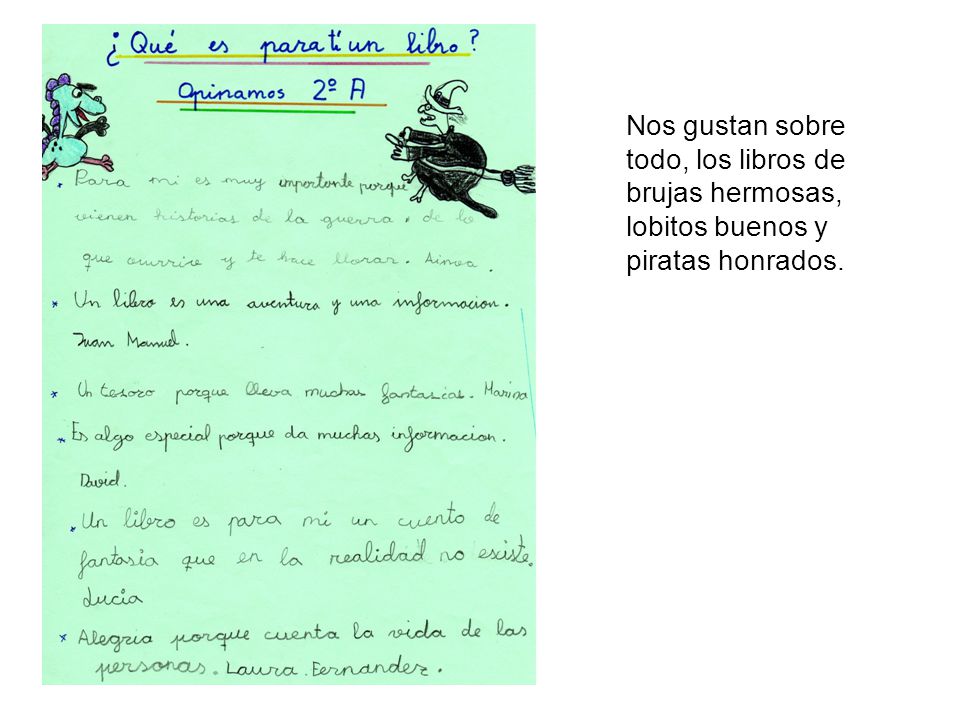 ¿Qué es para tí un libro?
Opinamos 2º A
. Para mi es muy importante porque
vienen historias de la guerra. de lo
que ocurrire y te hace llorar. Ainoa.
* Un libro es una aventura y una informacion.
Juan Manuel.
* Un tesoro porque lleva muchas fantasias. Marina
* Es algo especial porque da muchas informacion.
David.
* Un libro es para mi un cuento de
fantasia que en la realidad no existe.
Lucia
* Alegria porque cuenta la vida de las
personas. Laura Fernandez.
Nos gustan sobre
todo, los libros de
brujas hermosas,
lobitos buenos y
piratas honrados.